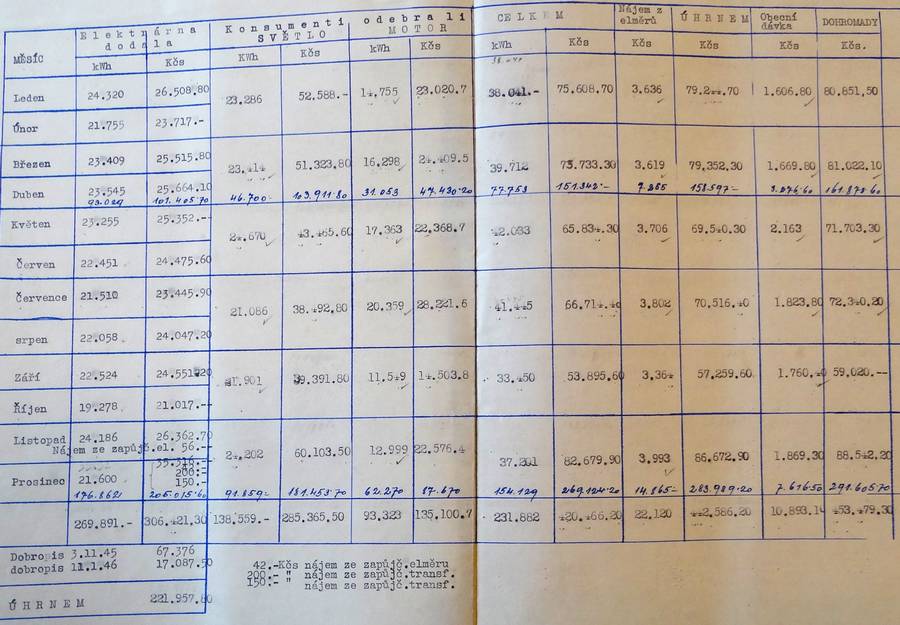 Elektrárna dodala Konsumenti odebrali CELKEM Nájem z elměrů ÚHRNEM Obecní dávka DOHROMADY
MĚSÍC SVĚTLO MOTOR
kWh Kčs KWh Kčs kWh Kčs kWh Kčs Kčs Kčs Kčs Kčs.
Leden 24.320 26.508.80 23.286 52,588.- 14,755 23.020.7 38.041.- 75,608.70 3,636 79.244.70 1.606.80 80.851,50
Únor 21.755 23.717.-
Březen 23.409 25.515.80 23.414 51.323,80 16,298 24.409.5 39.712 75.733.30 3.619 79,352.30 1.669.80 81.022.10
Duben 23.545 25.664.10
93.029 101.405.70 46.700.- 103.911.80 31.053 47.430.20 77.753 151.342.- 7.255 158.597.- 3.276.60 161.873.60
Květen 23.255 25.352.-- 24.670 43.465.60 17,363 22,368.7 42.033 65.834.30 3.706 69.540.30 2.163 71,703,30
Červen 22.451 24.475.60
Července 21.510 23.445.90 21.086 38.492,80 20.359 28,221.6 41.445 66.714.40 3,802 70,516.40 1.823,80 72,340.20
srpen 22.058 24.047.20
Září 22.524 24.551.20 21.901 39.391.80 11.549 14.503.8 33.450 53.895,60 3,364 57,259.60 1.760.40 59,020.--
Říjen 19.278 21.017.--
Listopad 24.186 26.362.70 24,202 60.103,50 12.999 22,576.4 37.201 82.679,90 3,993 86,672,90 1,869.30 88.542,20
Nájem ze zapůjč.el. 56.--
200.-
Prosinec 21.600 150.-
176.862 205.015.60 91.859.- 181.453.70 62.270 87.670 154.129 269.124.20 14.865.- 283.989.20 7.616.50 291.605.70
269.891.- 306.421,30 138.559.- 285.365,50 93,323 135.100.7 231.882 420.466.20 22,120 442.586.20 10,893.1 453.479.30
Dobropis 3.11.45 67.376
dobropis 11.1.46 17.087.50
42.-Kčs nájem ze zapůjč.elměru
200.- " nájem ze zapůjč.transf.
150.- " nájem ze zapůjč.transf.
ÚHRNEM 221.957.80